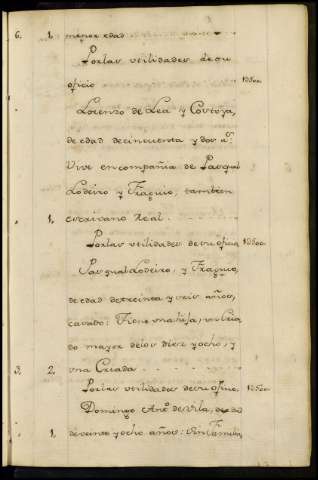 6. 1, menor edad
Por las utilidades de su
oficio 1500
Lorenzo de Lea y Cortoja,
de edad de cincuenta y dos a.s
Vive en compañia de Pasqual
Lodeiro y Fraguio, tambien
1, escrivano Real.
Por las utilidades de su oficio 1500
Pasqual Lodeiro, y Fraguio,
de edad de treinta y seis años,
casado: Tiene una hija, un Cria
do mayor de los diez y ocho, y
3. 2, una Criada
Por las utilidades de su oficio
Domingo Ant.o de Vila, de edad
1, de veinte y ocho años: Sin Familia